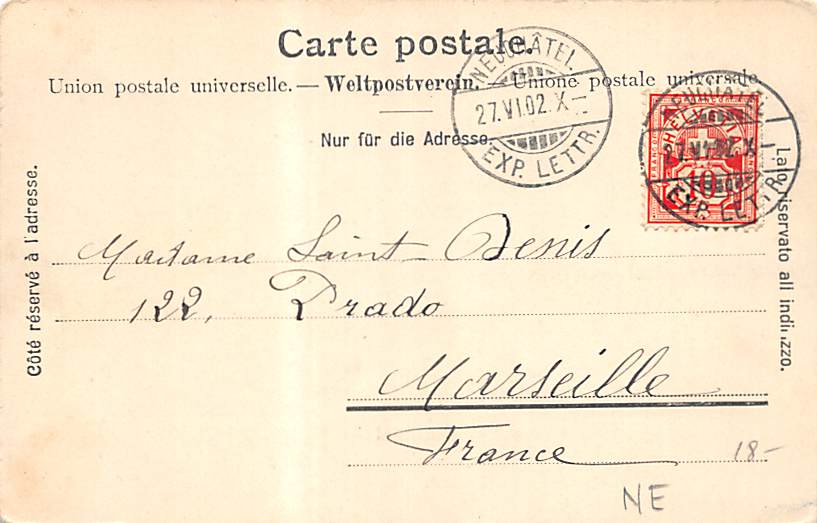 Carte postale.
Union postale universelle. — Weltpostverein. — Unione postale universale.
Nur für die Adresse.
NEUCHÂTEL
27.VI.02.X—
EXP. LETTR.
NEUCHATEL
27.VI.02.X—
EXP. LETTR.
HELVETIA
FRANCO
10
Côté réservé à l'adresse.
Lato riservato all indirizzo.
Madame Saint-Denis
122, Prado
Marseille
France
18-
NE